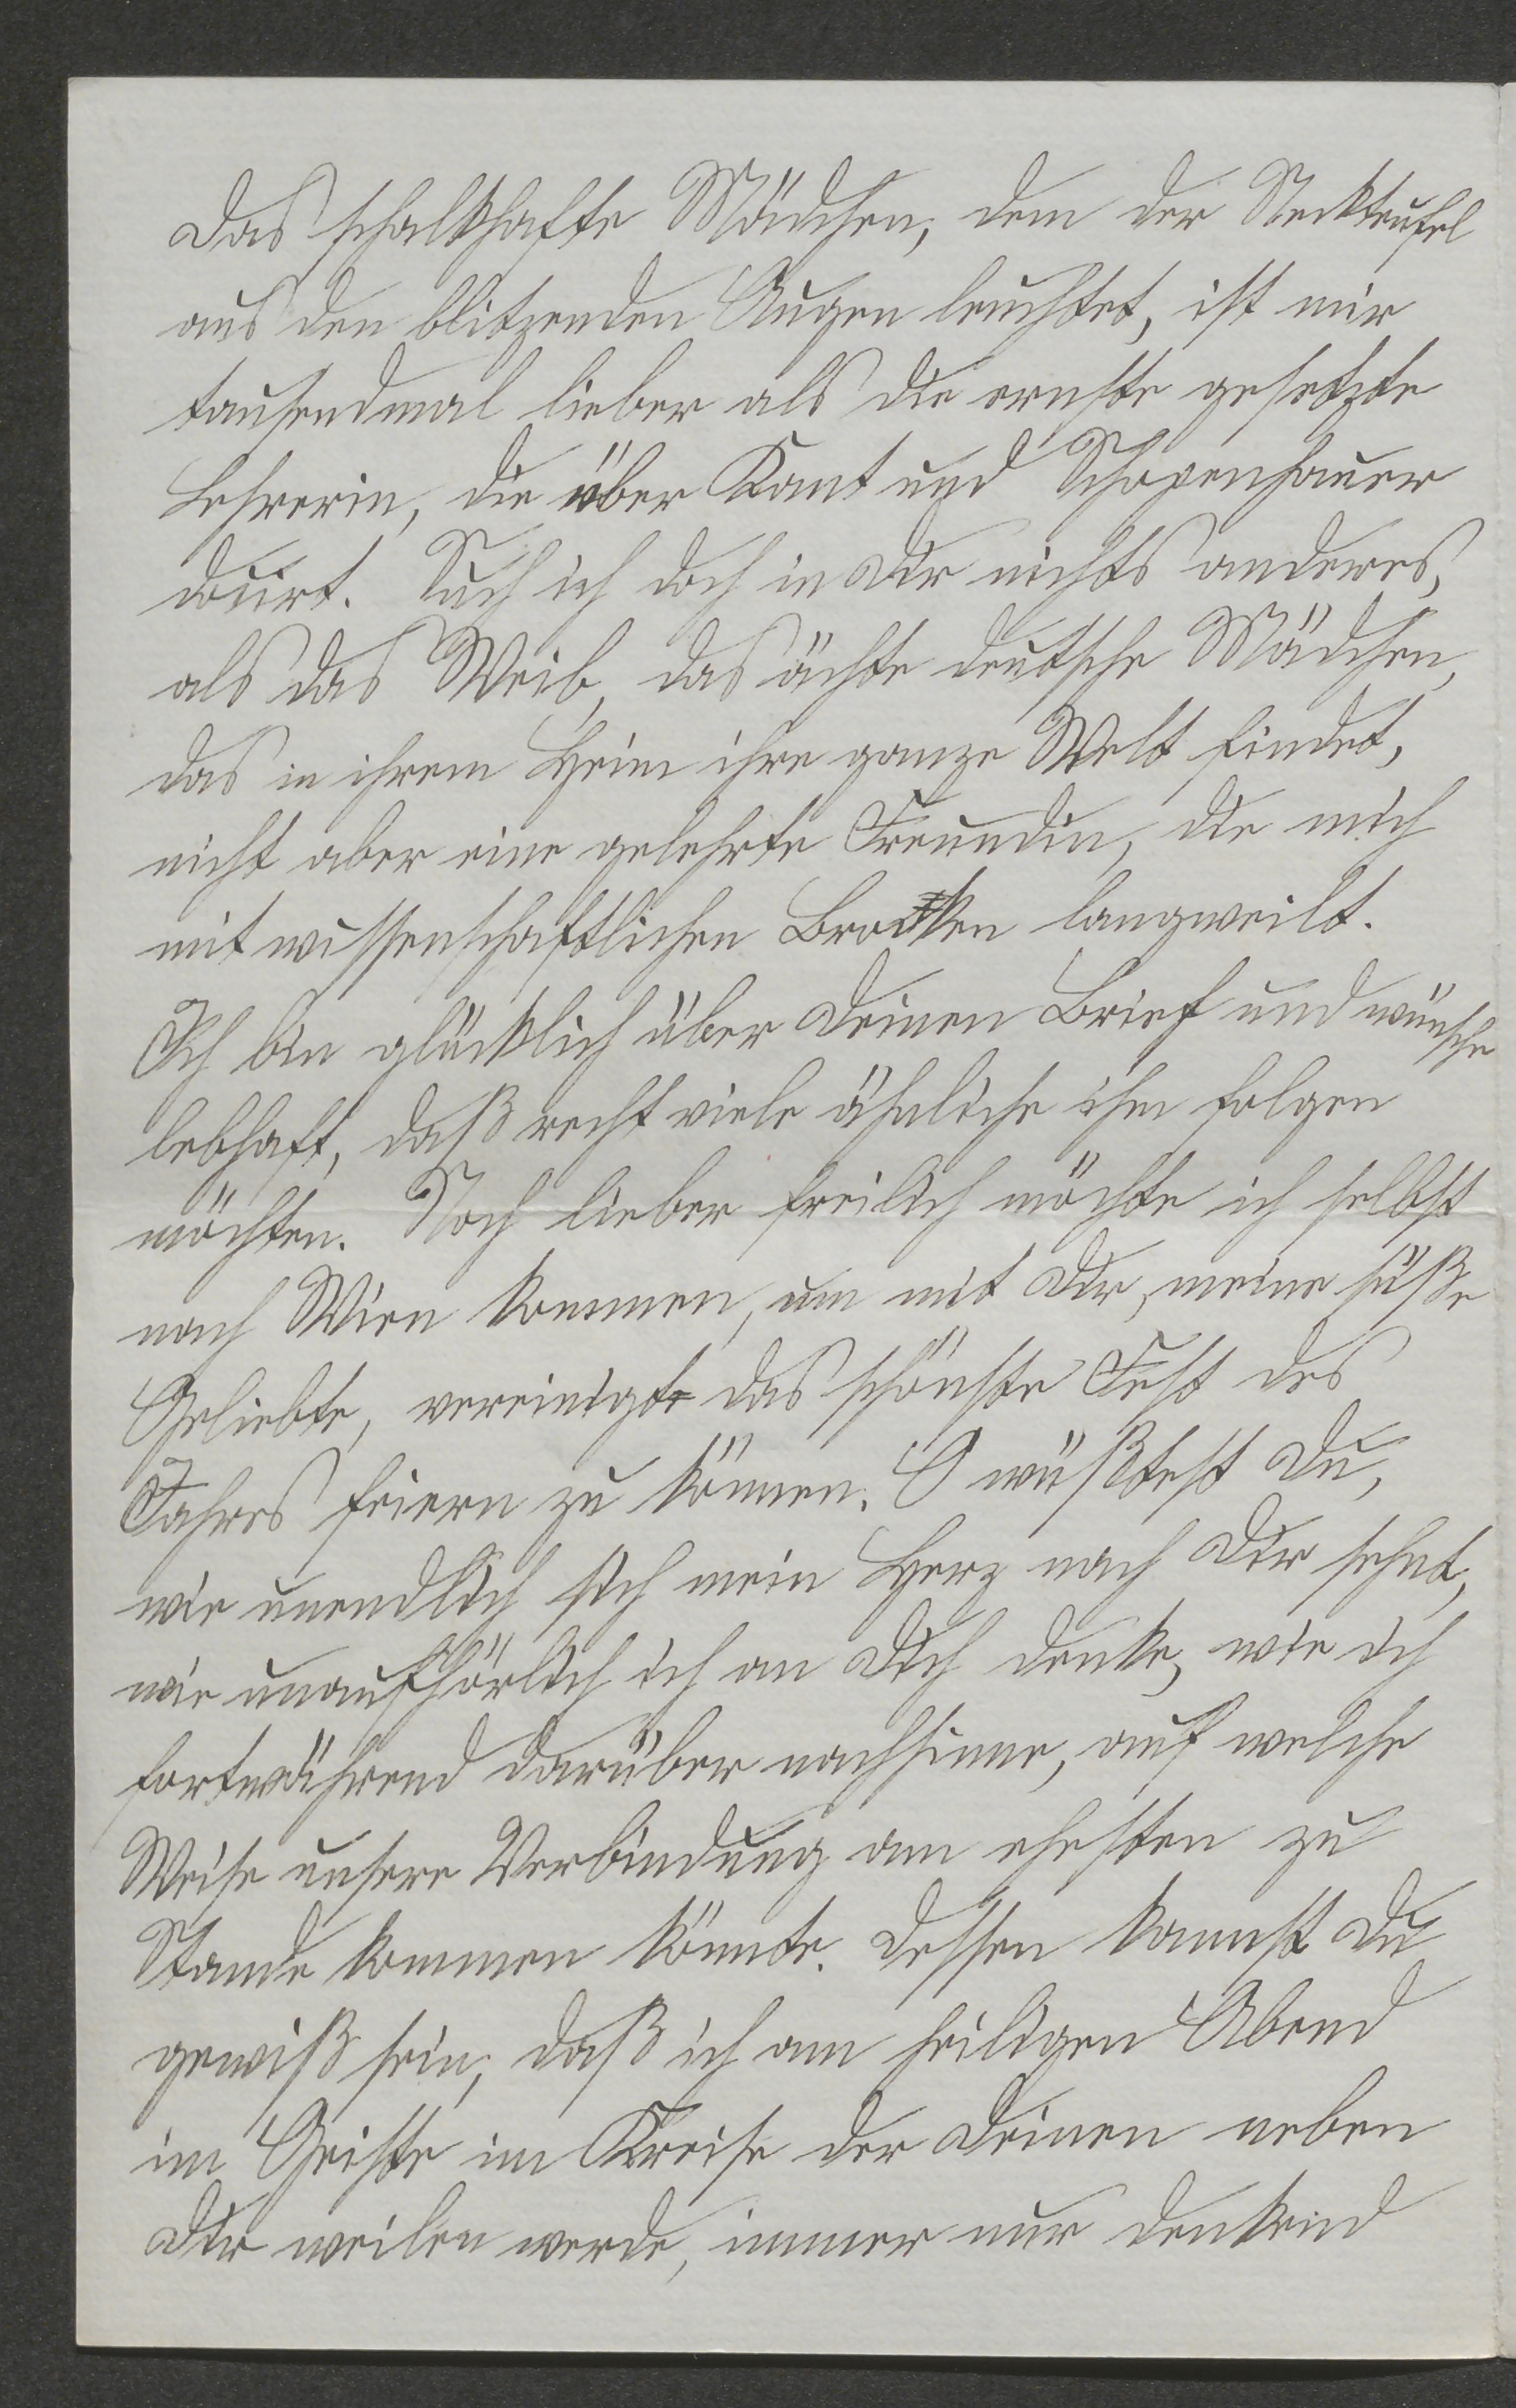 Das schalkhafte Mädchen, dem der Neckteufel
aus den blitzenden Augen leuchtet, ist mir
tausendmal lieber als die ernste gesetzte
Lehrerin, die über Kant und Schopenhauer
docirt. Such ich doch in Dir nichts anderes,
als das Weib, das ächte deutsche Mädchen,
das in ihrem Heim ihre ganze Welt findet,
nicht aber eine gelehrte Freundin, die mich
mit wissenschaftlichen Brocken langweilt.
Ich bin glücklich über Deinen Brief und wünsche
lebhaft, daß recht viele ähnliche ihm folgen
möchten. Noch lieber freilich möchte ich selbst
nach Wien kommen, um mit Dir, meine süße
Geliebte, vereinigt das schönste Fest des
Jahres feiern zu können. O wüßtest Du,
wie unendlich sich mein Herz nach Dir sehnt,
wie unaufhörlich ich an Dich denke, wie ich
fortwährend darüber nachsinne, auf welche
Weise unsere Verbindung am ehesten zu
Stande kommen könnte. Dessen kannst Du
gewiß sein, daß ich am heiligen Abend
im Geiste im Kreise der Deinen neben
Dir weilen werde, immer nur denkend